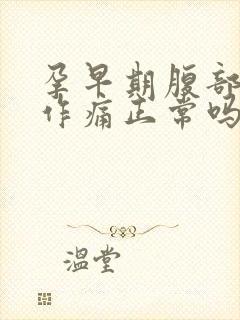 孕早期腹部
作痛正常吗
温堂